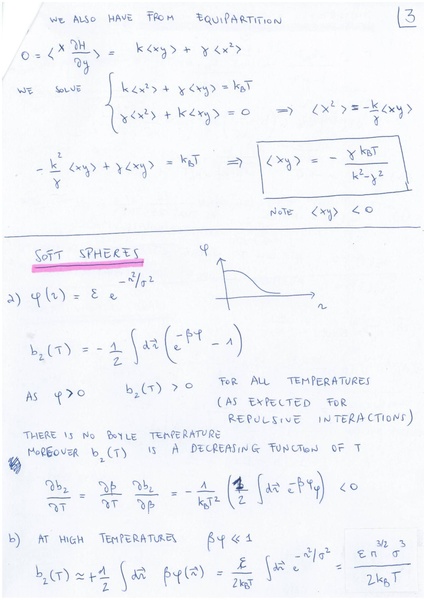 WE ALSO HAVE FROM EQUIPARTITION 3
0 = <x ∂H/∂y> = k<xy> + γ<x²>
WE SOLVE { k<x²> + γ<xy> = k_BT
γ<x²> + k<xy> = 0 ⇒ <x²> = -k/γ <xy>
-k²/γ <xy> + γ<xy> = k_BT ⇒ <xy> = - γ k_BT / (k²-γ²)
NOTE <xy> < 0
SOFT SPHERES
φ
a) φ(r) = ε e^(-r²/σ²)
r
b₂(T) = - 1/2 ∫ dr⃗ (e^(-βφ) - 1)
AS φ>0 b₂(T) > 0 FOR ALL TEMPERATURES
(AS EXPECTED FOR
REPULSIVE INTERACTIONS)
THERE IS NO BOYLE TEMPERATURE
MOREOVER b₂(T) IS A DECREASING FUNCTION OF T
∂b₂/∂T = ∂β/∂T ∂b₂/∂β = - 1/(k_BT²) (1/2 ∫ dr⃗ e^(-βφ) φ) < 0
b) AT HIGH TEMPERATURES βφ ≪ 1
b₂(T) ≃ + 1/2 ∫ dr⃗ βφ(r⃗) = ε/(2k_BT) ∫ dr⃗ e^(-r²/σ²) = ε π^(3/2) σ³ / (2k_BT)